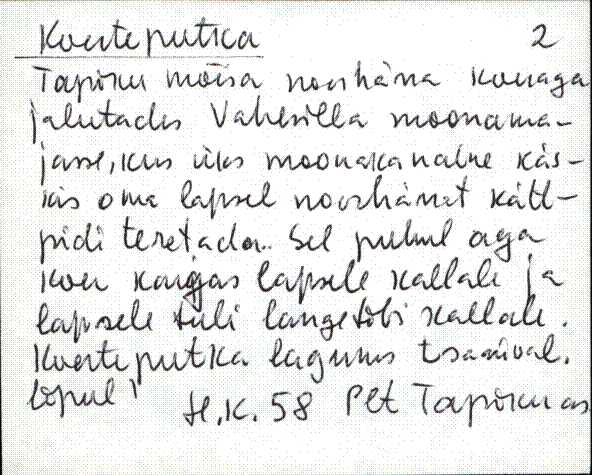 Koerteputka 2
Tapiku mõisa noorhärra koeraga
jalutades Vahesilla moonama-
jasse, kus üks moonakanaine käs-
kis oma lapsel noorhärrat kätt-
pidi teretada. Sel puhul aga
koer kargas lapsele kallale ja
lapsele tuli langetõbi kallale.
Koerteputka lagunes tsaarival.
lõpul
H.K. 58 Plt Tapikuas